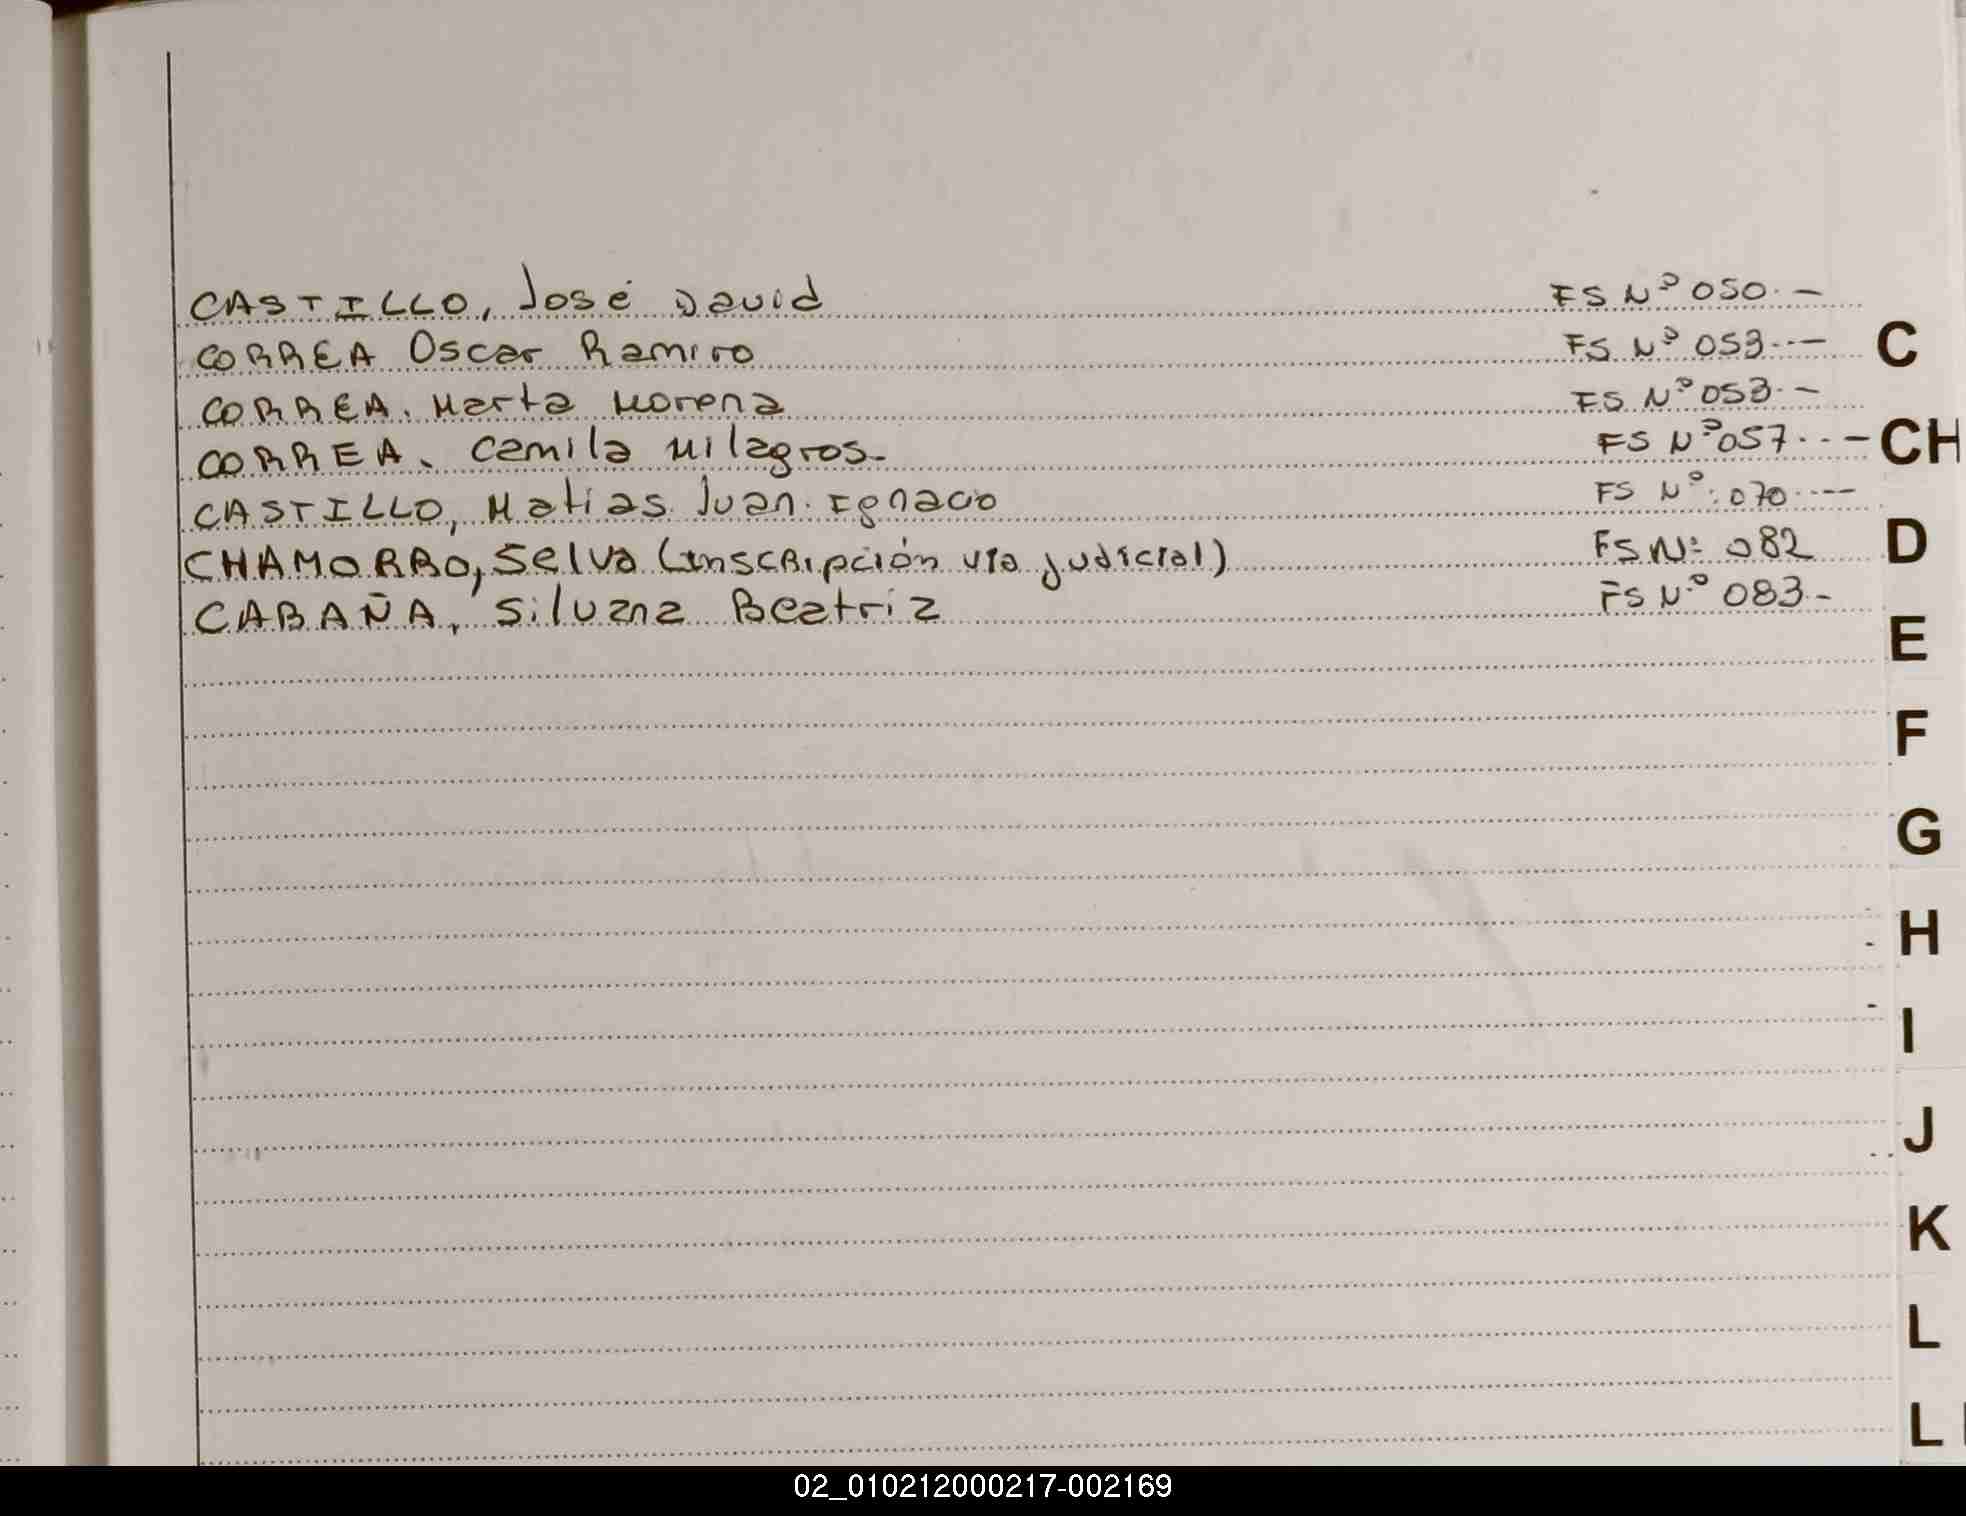 CASTILLO, José David FS Nº 050.-
CORREA Oscar Ramiro FS Nº 053.--
CORREA. Marta Morena FS Nº 053.-
CORREA. Camila Milagros.- FS Nº 057..-
CASTILLO, Matias Juan. Ignacio FS Nº: 070.---
CHAMORRO, Selva (inscripción vía judicial) FS Nº: 082
CABAÑA, Silvana Beatriz FS Nº 083.-
C
CH
D
E
F
G
H
I
J
K
L
LL
02_010212000217-002169